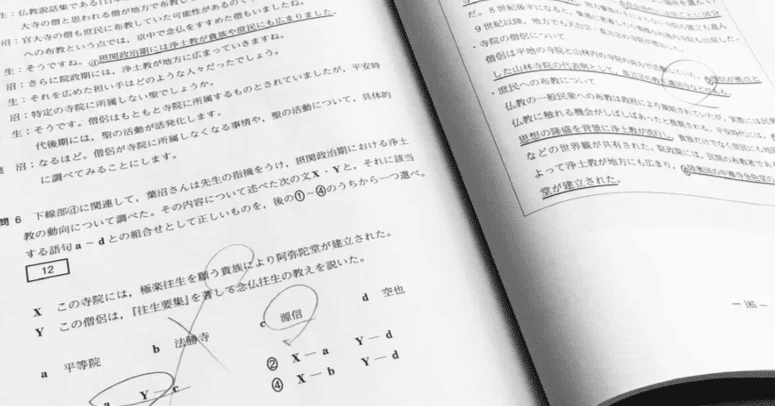 生:仏教説話集である『日本
大寺の僧と思われる僧が地方で布教し
沼:官大寺の僧も庶民に布教していた可能性があるので
への布教という点では,京中で念仏をすすめた僧もいましたね。
生:そうですね。ⓓ摂関政治期には浄土教が貴族や庶民にも広まりました。
沼:さらに院政期には,浄土教が地方に広まっていきますね。
生:それを広めた担い手はどのような人々だったでしょう。
沼:特定の寺院に所属しない聖でしょうか。
生:そうです。僧侶はもともと寺院に所属するものとされていましたが,平安時
代後期には,聖の活動が活発化します。
沼:なるほど。僧侶が寺院に所属しなくなる事情や,聖の活動について,具体的
に調べてみることにします。
問 6 下線部ⓓに関連して,葉沼さんは先生の指摘をうけ,摂関政治期における浄土
教の動向について調べた。その内容について述べた次の文X・Yと,それに該当
する語句a~dとの組合せとして正しいものを,後の①~④のうちから一つ選べ。
12
X この寺院には,極楽往生を願う貴族により阿弥陀堂が建立された。
Y この僧侶は,『往生要集』を著して念仏往生の教えを説いた。
a 平等院 b 法勝寺 c 源信 d 空也
a Y―c ② X―a Y―d
④ X―b Y―d
9世紀以降,地方でも
・寺院の僧侶について
僧侶は平地の寺院と山林内の寺院
した山林寺院の代表例として,
・庶民への布教について
仏教の一般民衆への布教は政府により規制されていたが,実際には民衆
仏教に触れる機会がしばしばあったと推察される。平安時代には,
思想の隆盛を背景に浄土教が流行し,貴族だけでなく庶民にも地
などの世界観が共有された。院政期には,民間の布教者
よって浄土教が地方にも広まり,
堂が建立された。